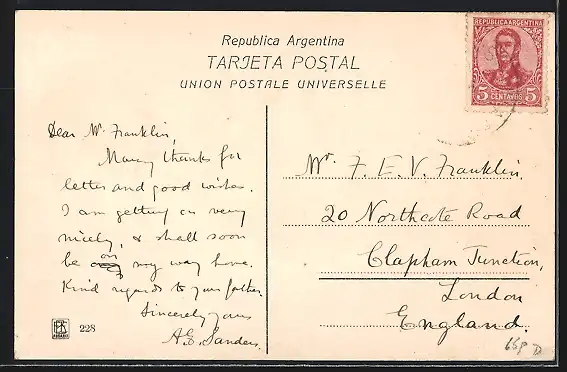 Republica Argentina
TARJETA POSTAL
UNION POSTALE UNIVERSELLE
REPUBLICA ARGENTINA
5 CENTAVOS 5
Dear Mr Franklin,
Many thanks for
letter and good wishes.
I am getting on very
nicely, & shall soon
be on my way home.
Kind regards to your father.
Sincerely yours
A.E. Sanders.
Mr. F. E. V. Franklin,
20 Northcote Road
Clapham Junction,
London
England.
228